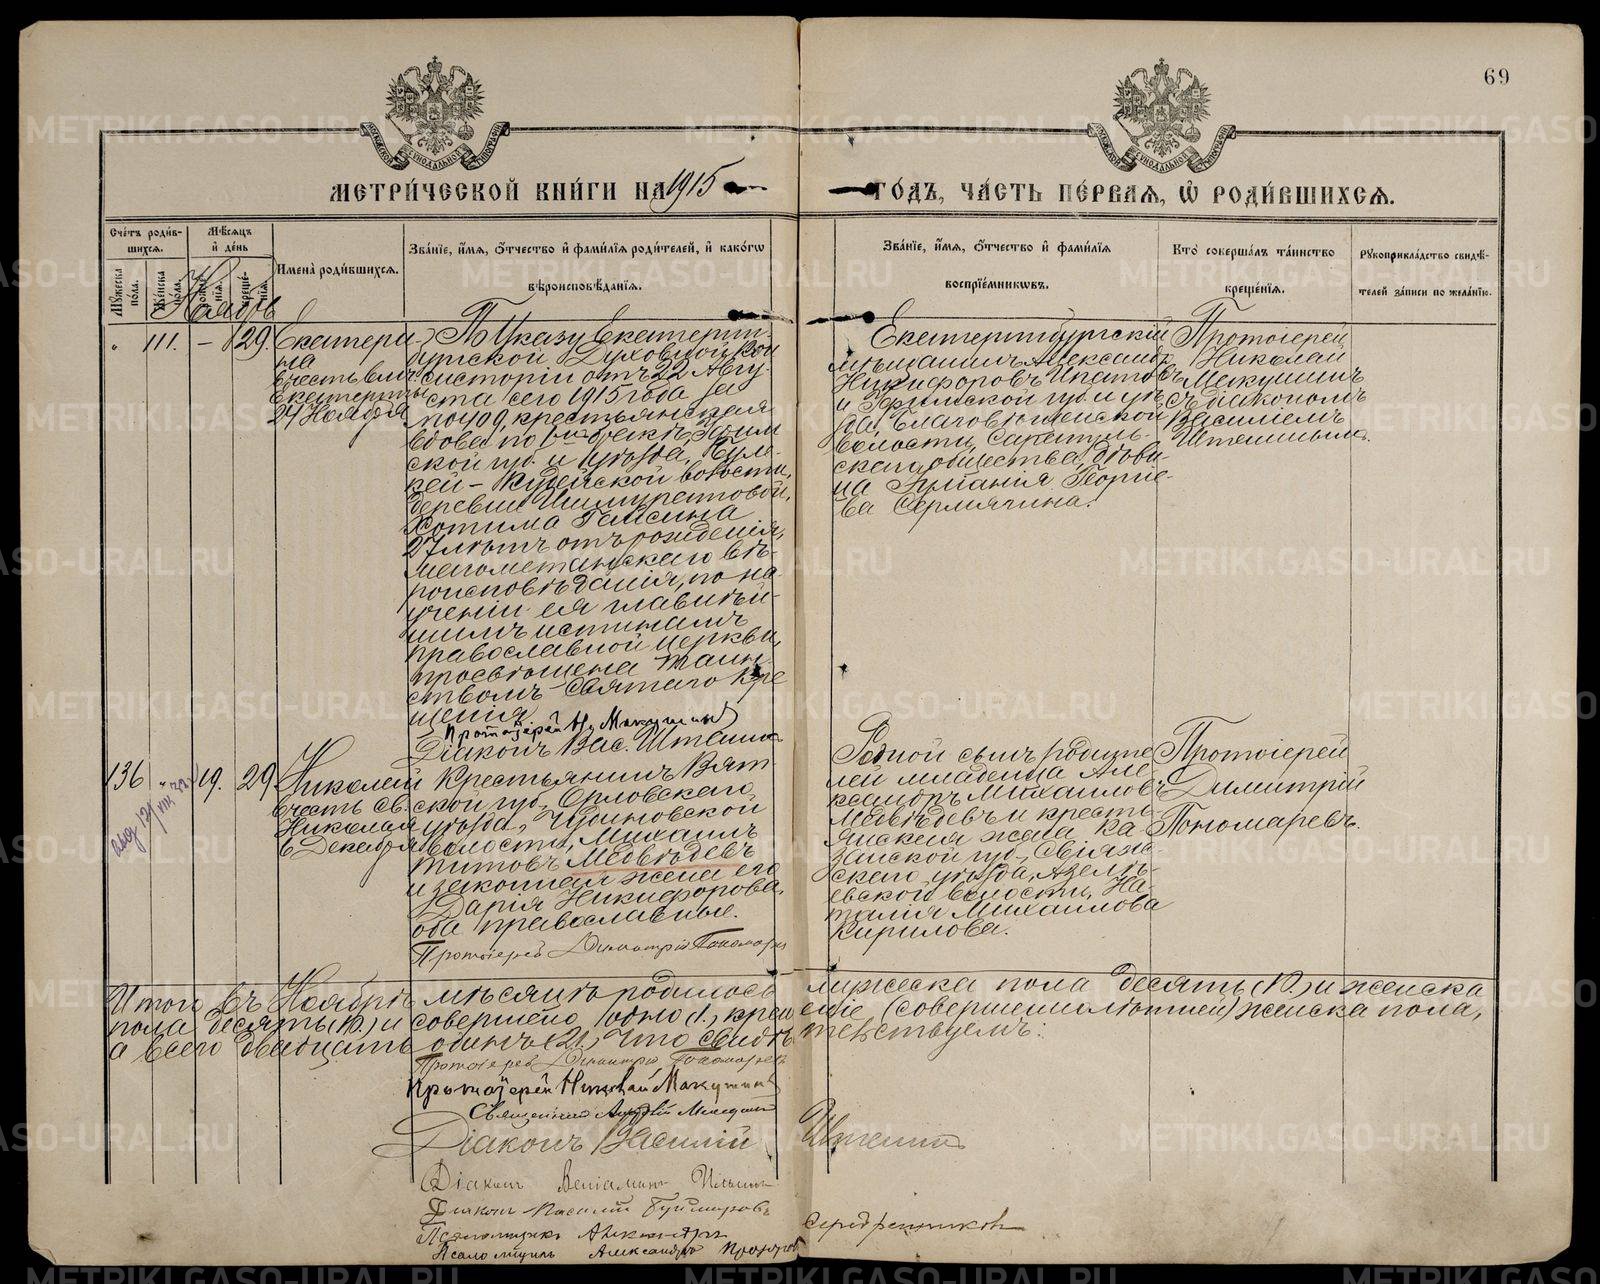 69
МЕТРИ́ЧЕСКОЙ КНИ́ГИ НА 1915 ГО́ДЪ, ЧА́СТЬ ПЕ́РВАЯ, Ѡ РОДИ́ВШИХСЯ.
Сче́тъ роди́в-
шихся.
Мꙋжеска по́ла.
Же́нска по́ла.
Мѣ́сяцъ
и҆ де́нь
Ноябрь
Имена̀ роди́вшихся.
Зва́нїе, и҆́мя, ѻ҆́тчество и҆ фами́лїя роди́телей, и҆ како́гѡ
вѣроисповѣ́данїя.
Зва́нїе, и҆́мя, ѻ҆́тчество и҆ фами́лїя
воспрїе́мникѡвъ.
Кто̀ соверша́лъ та́инство
креще́нїя.
Рꙋкоприкла́дство свидѣ́-
телей за́писи по жела́нїю.
" III. — 29.
Екатери-
на
въ честь влмч.
Екатерины
24 Ноября
По Указу Екатерин-
бургской Духовной Кон
систоріи отъ 22 Авгу-
ста сего 1915 года за
№ 409, крестьянская
вдова
ской губ. и уѣзда,
волости,
деревни
27 лѣтъ отъ рожденія,
магометанскаго вѣ-
роисповѣданія, по на-
ученіи ея главнѣй-
шимъ истинамъ
православной церкви,
просвѣщена таин-
ствомъ Святаго Кре
щенія.
Протоіерей Н. Макушинъ
Діаконъ Вас. Иштенинъ
Екатеринбургскій
мѣщанинъ Александръ
Никифоровъ Ипатовъ
и Уфимской губ. и уѣз
да, Благовѣщенской
волости,
скаго общества, дѣви-
ца Георгіе-
ва Сермячина.
Протоіерей
Николай
Макушинъ
съ діакономъ
Василіемъ
Иштенинымъ.
136 " 19. 29
Николай
въ честь св.
Николая
6 Декабря
Крестьянинъ Вят
ской губ., Орловскаго
уѣзда,
волости, Михаилъ
Титовъ Медвѣдевъ
и законная жена его
Дарія Никифорова,
оба православные.
Протоіерей Димитрій Пономаревъ
Родной сынъ родите
лей младенца Але
ксандръ Михаиловъ
Медвѣдевъ и кресть
янская жена Ка
занской губ., Свіяж-
скаго уѣзда, Азелѣ-
евской волости, На-
талія Михаилова
Кирилова.
Протоіерей
Димитрій
Пономаревъ.
Итого въ Ноябрѣ мѣсяцѣ родилось мужеска пола десять (10.) и женска
пола десять (10.) и совершено одно (1.) крещеніе (совершеннолѣтней) женска пола,
а всего двадцать одинъ (21.) Что свидѣтельствуемъ:
Протоіерей Димитрій Пономаревъ
Протоіерей Николай Макушинъ
Священникъ
Діаконъ Василій Иштенинъ
Діаконъ Веніаминъ
Діаконъ Василій
Псаломщикъ Александръ Серебренниковъ
Псаломщикъ Александръ
METRIKI.GASO-URAL.RU